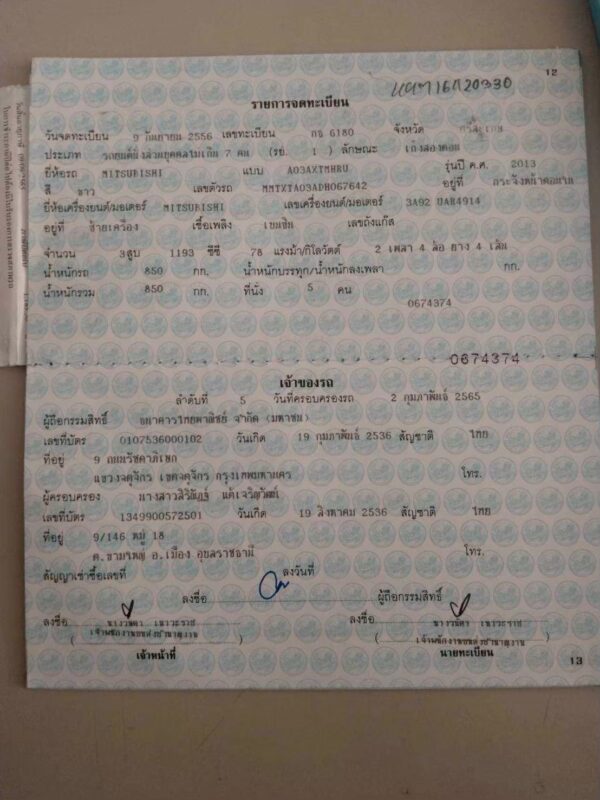 12
รายการจดทะเบียน
วันจดทะเบียน 9 กันยายน 2556 เลขทะเบียน กธ 6180 จังหวัด
ประเภท รถยนต์นั่งส่วนบุคคลไม่เกิน 7 คน (รย. 1 ) ลักษณะ เก๋งสองตอน
ยี่ห้อรถ MITSUBISHI แบบ A03AXTMHRU รุ่นปี ค.ศ. 2013
สี ขาว เลขตัวรถ MMTXTA03ADH067642 อยู่ที่
ยี่ห้อเครื่องยนต์/มอเตอร์ MITSUBISHI เลขเครื่องยนต์/มอเตอร์ 3A92 UAR4914
อยู่ที่ ซ้ายเครื่อง เชื้อเพลิง เบนซิน เลขถังแก๊ส
จำนวน 3 สูบ 1193 ซีซี 78 แรงม้า/กิโลวัตต์ 2 เพลา 4 ล้อ ยาง 4 เส้น
น้ำหนักรถ 850 กก. น้ำหนักบรรทุก/น้ำหนักลงเพลา กก.
น้ำหนักรวม 850 กก. ที่นั่ง 5 คน
0674374
0674374
เจ้าของรถ
ลำดับที่ 5 วันที่ครอบครองรถ 2 กุมภาพันธ์ 2565
ผู้ถือกรรมสิทธิ์ ธนาคารไทยพาณิชย์ จำกัด (มหาชน)
เลขที่บัตร 0107536000102 วันเกิด 19 กุมภาพันธ์ 2536 สัญชาติ ไทย
ที่อยู่ 9 ถนนรัชดาภิเษก
แขวงจตุจักร เขตจตุจักร กรุงเทพมหานคร โทร.
ผู้ครอบครอง นางสาวสิริณัฏฐ์
เลขที่บัตร 1349900572501 วันเกิด 19 สิงหาคม 2536 สัญชาติ ไทย
ที่อยู่ 9/146 หมู่ 18
ต.ขามใหญ่ อ.เมือง อุบลราชธานี โทร.
สัญญาเช่าซื้อเลขที่ ลงวันที่
ลงชื่อ ผู้ถือกรรมสิทธิ์
ลงชื่อ ลงชื่อ
เจ้าหน้าที่ นายทะเบียน
13